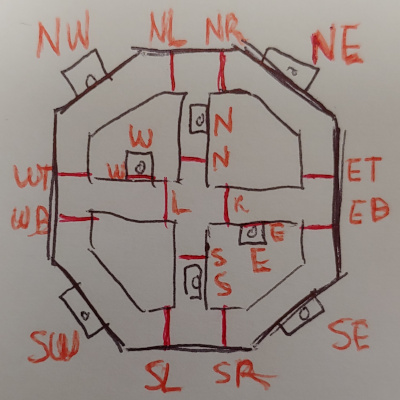 NW NL NR NE
N
W
N
WT W ET
L R
WB EB
E
S E
S
SW SE
SL SR